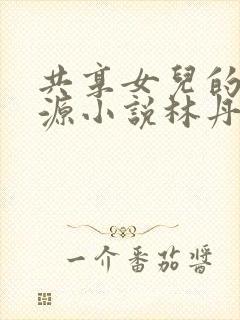 共享女兒的
源小說林丹
一介番茄醬